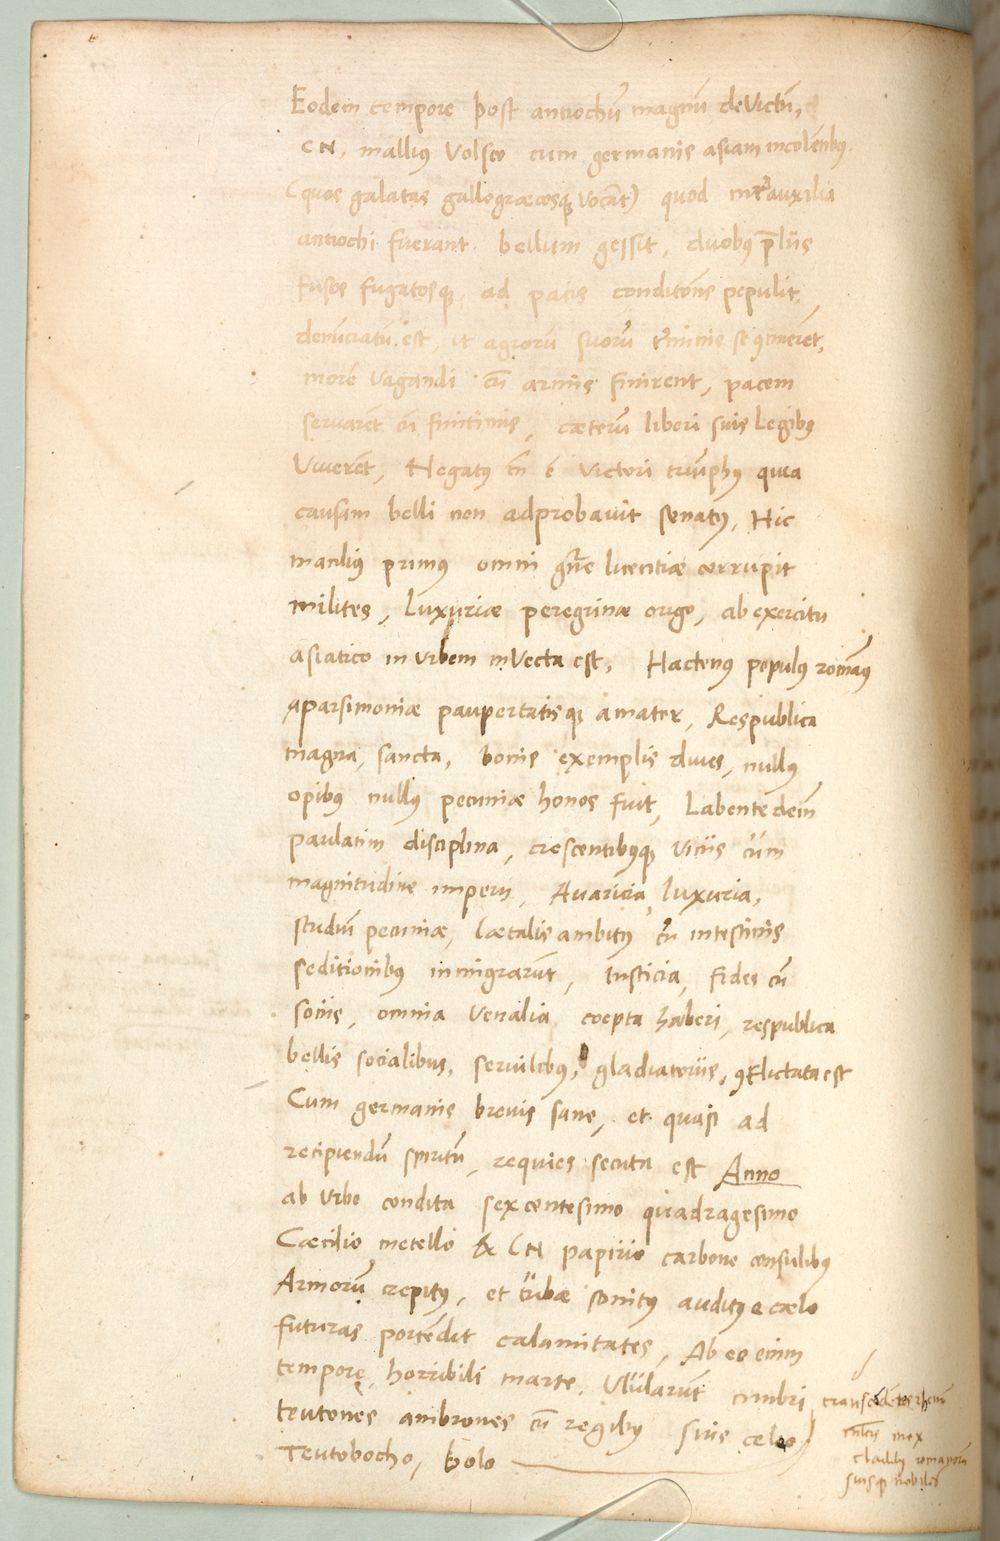 Eodem tempore post antiochū magnū deVictū,
CN. mallius Volsco cum germanis asiam incolentibꝰ.
(quos galatas gallogræcosqꝫ vocāt) quod inter auxilia
antiochi fuerant bellum gessit, duobꝰ p̄liis
fusos fugatosqꝫ, ad pacis conditiōes pepulit,
denūciatū est, ut agrorū suorū terminis se ꝯtineret,
morē vagandi cū armis finirent, pacem
servarēt cū finitimis, cæterū liberi suis Legibꝰ
Viverēt, Negatꝰ tn̄ ē victori triūphꝰ quia
causam belli non adprobavit senatꝰ, Hic
manlius primꝰ omni gn̄e licentiæ corrupit
milites, Luxuriæ peregrinæ origo, ab exercitu
asiatico in urbem inVecta est, Hactenꝰ populꝰ romāꝰ
parsimoniæ paupertatisqꝫ amater, Respublica
magna, sancta, bonis exemplis dives, nullꝰ
opibꝰ nullꝰ pecuniæ honos fuit, Labente dein̄
paulatim disciplina, crescentibꝰqꝫ vitiis cūm
magnitudine imperii, Avaricia, luxuria,
studiū pecuniæ, lætalis ambitꝰ cū intestinis
seditionibꝰ inmigrarūt, Iusticia, fides cū
sociis, omnia Venalia coepta haberi, respublica
bellis socialibus, servilibus, gladiatoriis, ꝯflictata est
Cum germanis brevis sane, et quasi ad
recipiendū spiritū, requies secuta est Anno
ab Urbe condita sexcentesimo quadragesimo
Cæcilio metello & CN papirio carbone consulibꝰ
Armorū crepitꝰ, et tubæ sonitꝰ auditꝰ e cælo
futuras portēdit calamitates, Ab eo enim
tempore, horribili marte, Ulularūt cimbri
teutones ambrones cū regibꝰ suis celeo
Teutobocho, bolo
transcēdētes rhenū
mox
cladibꝰ romanorū
suisqꝫ nobiles